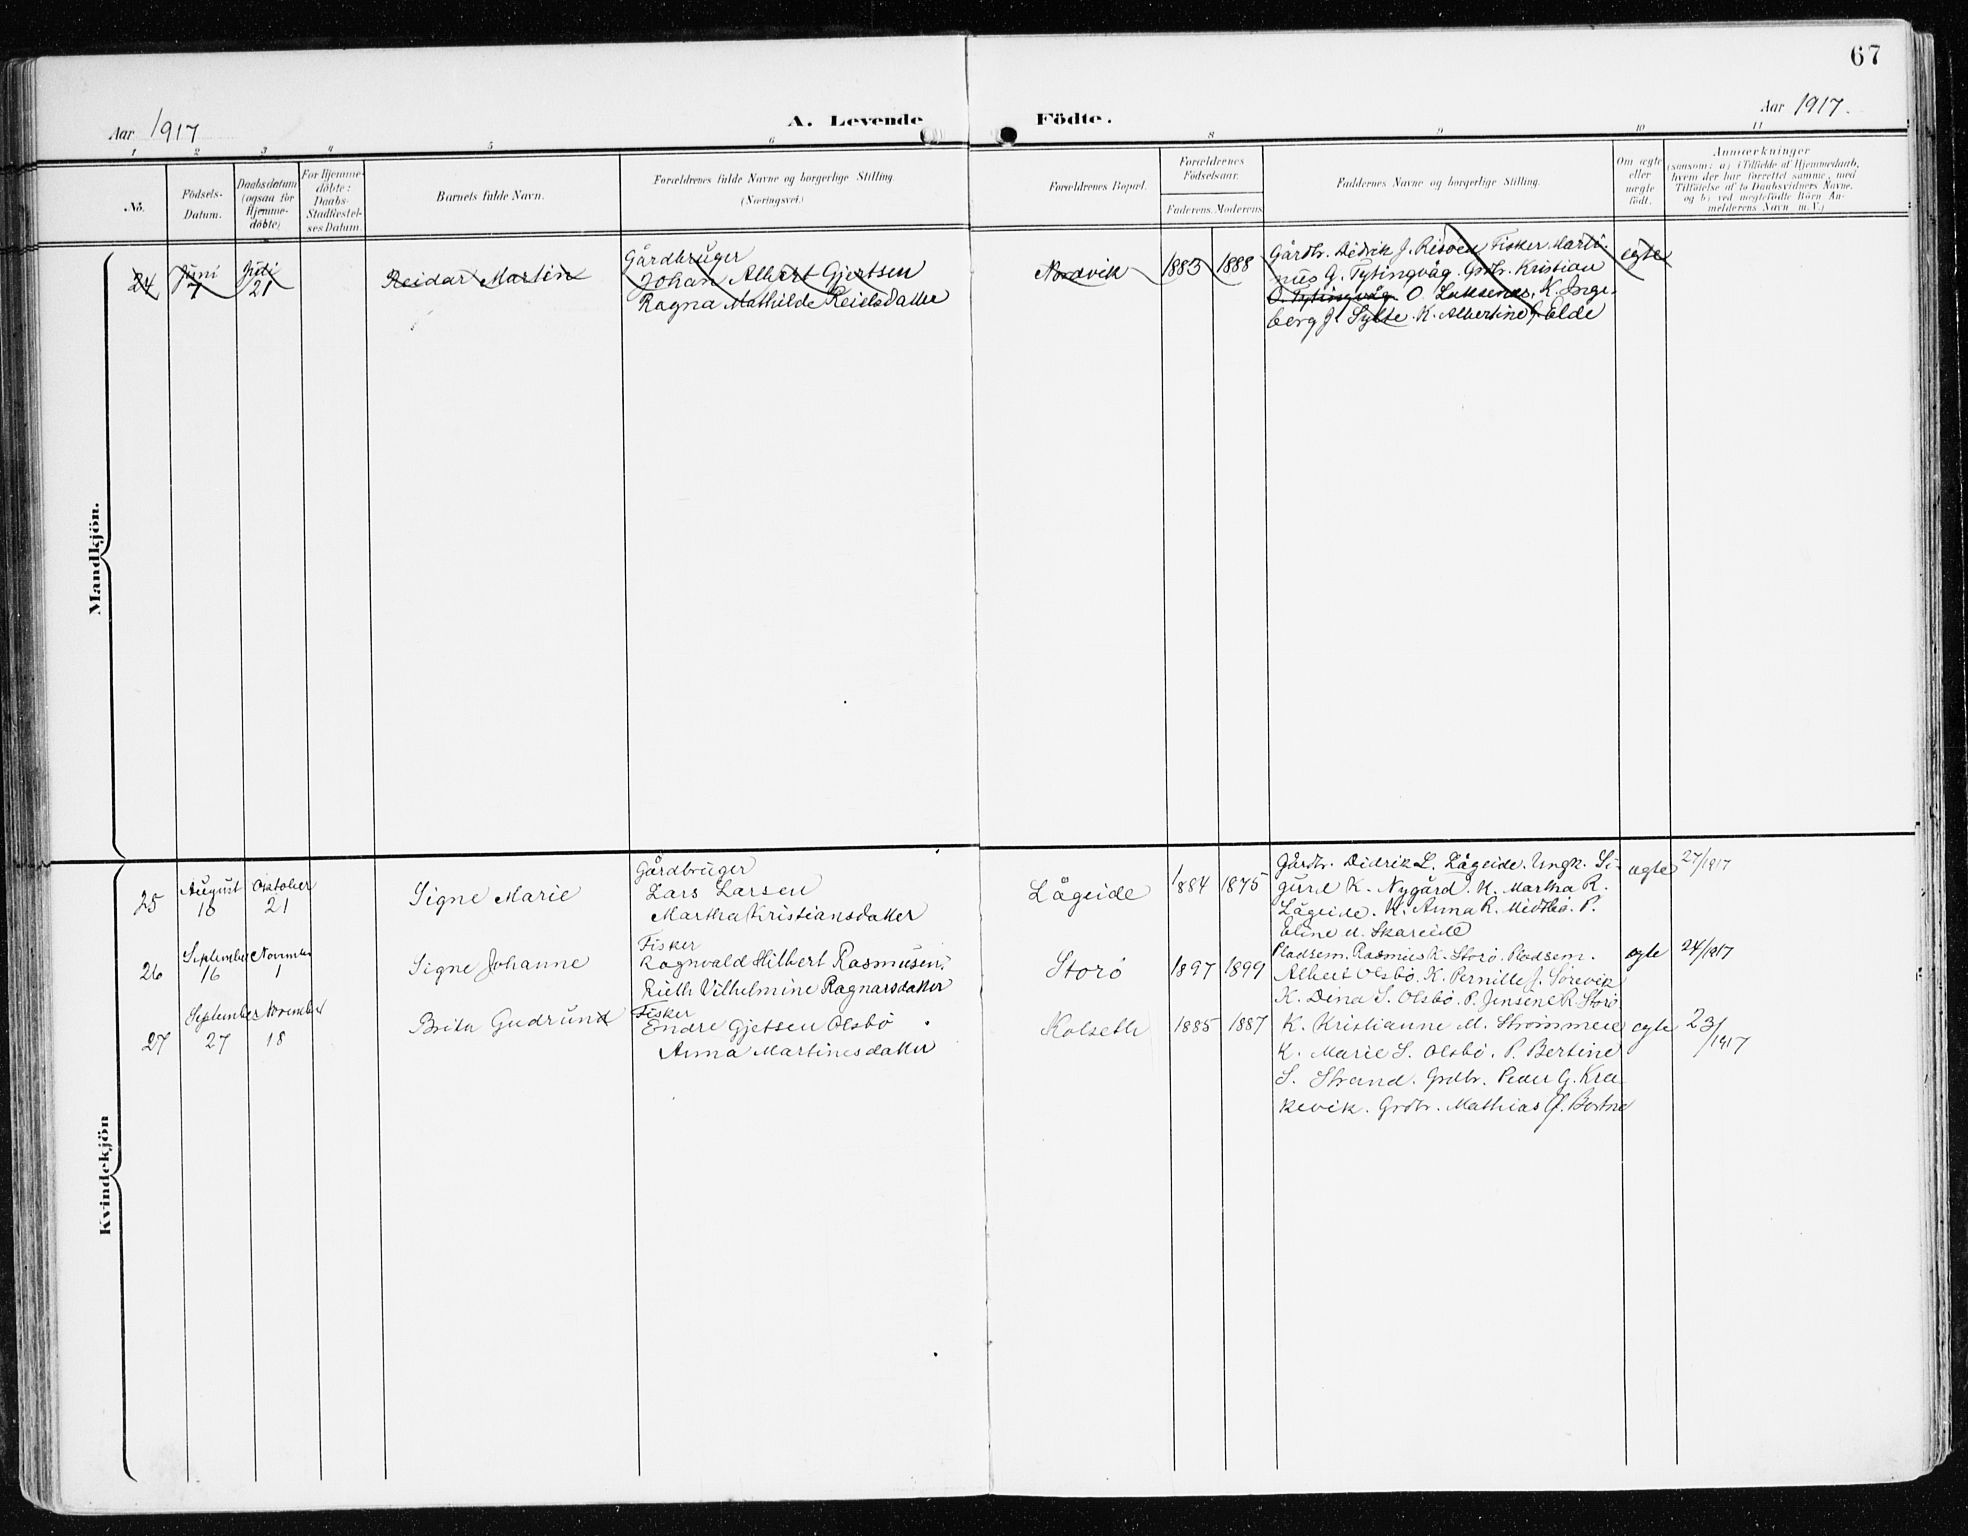 67
Aar 1917
A. Levende Födte.
Aar 1917.
1 2 3 4 5 6 8 9 10 11
No.
Födsels-
Datum.
Daabsdatum
(ogsaa for
Hjemme-
döbte)
For Hjemme-
döbte:
Daabs-
Stadfæstel-
ses Datum.
Barnets fulde Navn.
Forældrenes fulde Navne og borgerlige Stilling
(Næringsvei.)
Forældrenes Bopæl.
Forældrenes
Födselsaar.
Faderens. Moderens
Faddernes Navne og borgerlige Stilling.
Om ægte
eller
uægte
födt.
Anmærkninger
(saasom: a) i Tilfælde af Hjemmedaab,
hvem der har forrettet samme, med
Tilföielse af to Daabsvidners Navne,
og b) ved uægtefödte Börn An-
melderens Navn m.V.)
Mandkjön.
24
Juni
7
Juli
21
Reidar Martin
Gårdbruger
Johan Albert Gjertsen
Ragna Mathilde Reielsdatter
Nordvik
1883
1888
Gårdbr. Didrik J. Risöen Fisker Marti-
nus G. Tytingvåg. Grdbr. Kristian
O. Tytingvåg O. K. Inge-
berg J. Sylte. K. Albertine J. Elde
egte
Kvindekjön
25
August
16
Oktober
21
Signe Marie
Gårdbruger
Lars Larsen
Martha Kristiansdatter
Lågeide
1884
1875
Gårdbr. Didrik L. Lågeide. Ungk. Si-
gurd K. Nygård. K. Martha R.
Lågeide. K. Anna R. Midtbö. P.
Eline M. Skareide
egte
27/1917
26
September
16
November
1
Signe Johanne
Fisker
Ragnvald Hilbert Rasmusen
Ruth Vilhelmine Ragnarsdatter
Storö
1897
1899
Pladsem. Rasmus K. Storö. Pladsem.
Albert Olsbö. K. Pernille J. Sörevik
K. Dina S. Olsbö. P. Jensene R. Storö
egte
24/1917
27
September
27
November
18
Brita Gudrund
Fisker
Endre Gjetsen Olsbö
Anna Martinesdatter
Kolseth
1885
1887
K. Kristianne M. Strömmene
K. Marie S. Olsbö. P. Bertine
S. Strand. Grdbr. Peder G. Kra-
kevik. Grdbr. Mathias J. Bortne
egte
23/1917